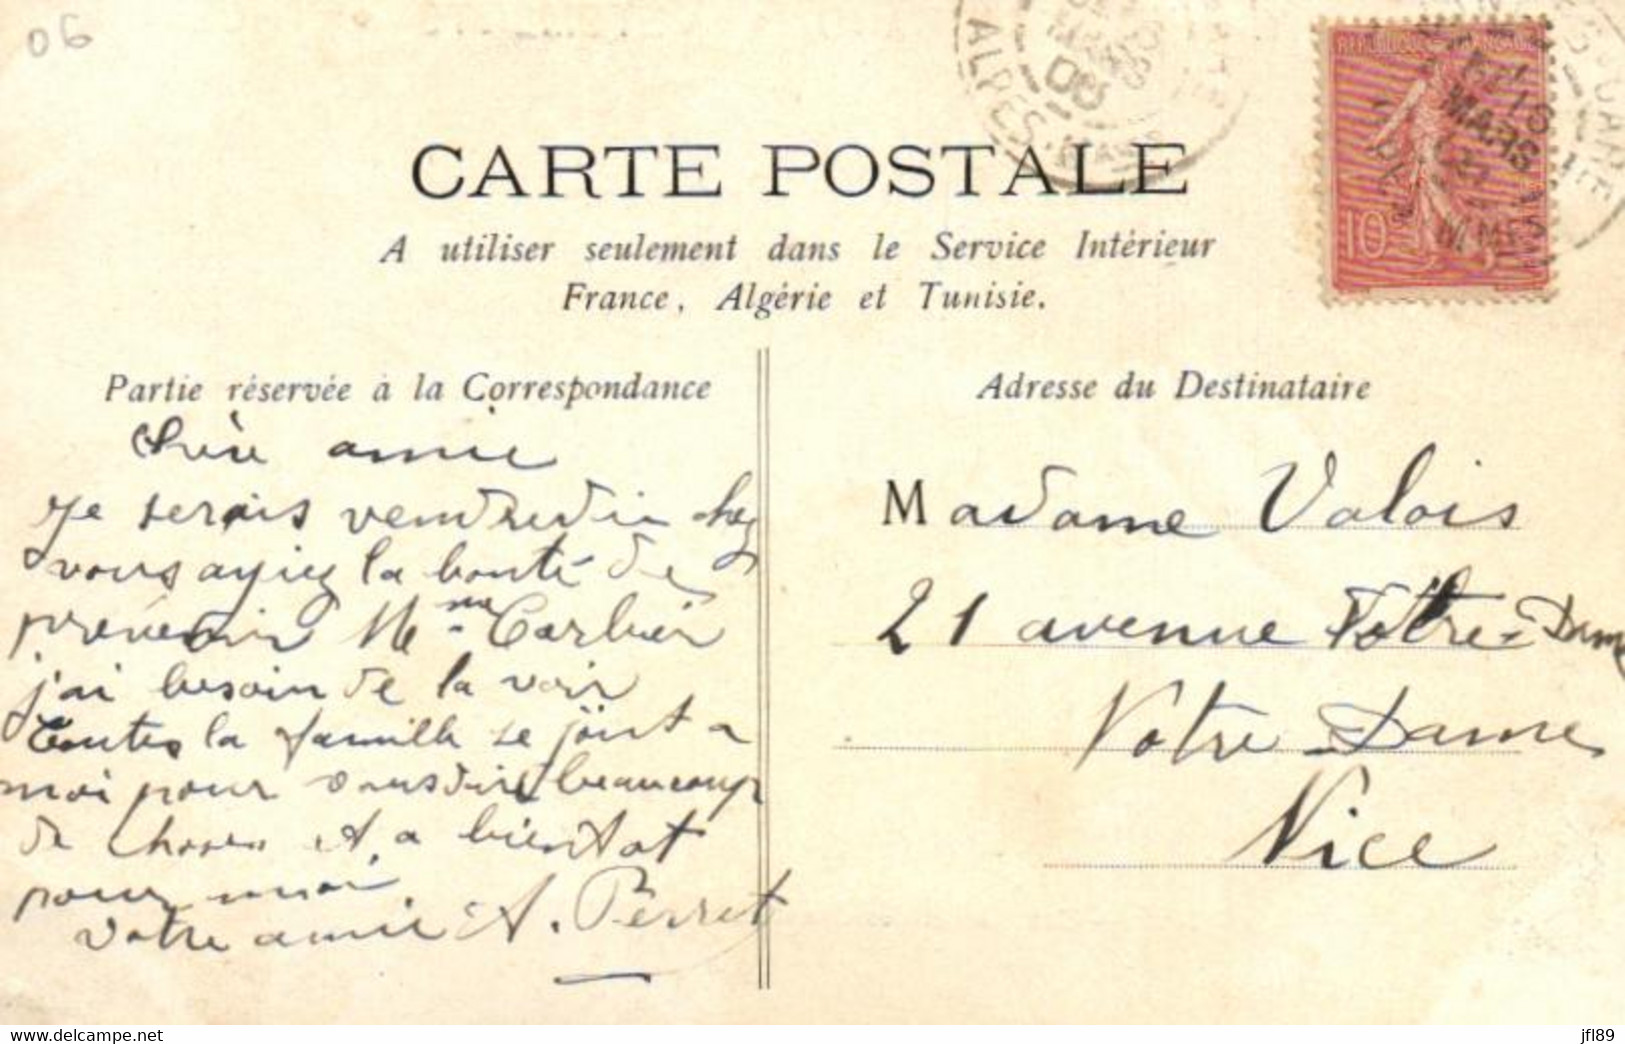 06
CARTE POSTALE
A utiliser seulement dans le Service Intérieur
France, Algérie et Tunisie.
REPUBLIQUE FRANÇAISE
10
MARS
ALPES
Partie réservée à la Correspondance
Chère amie
Je serais vendredi chez
vous ayiez la bonté de
prévenir Mme Carbier
j'ai besoin de la voir
Toutes la famille se joint a
moi pour vous dire beaucoup
de choses et a bientot
pour moi
votre amie A. Perret
Adresse du Destinataire
Madame Valois
21 avenue Notre-Dame
Notre-Dame
Nice
www.delcampe.net
jfl89